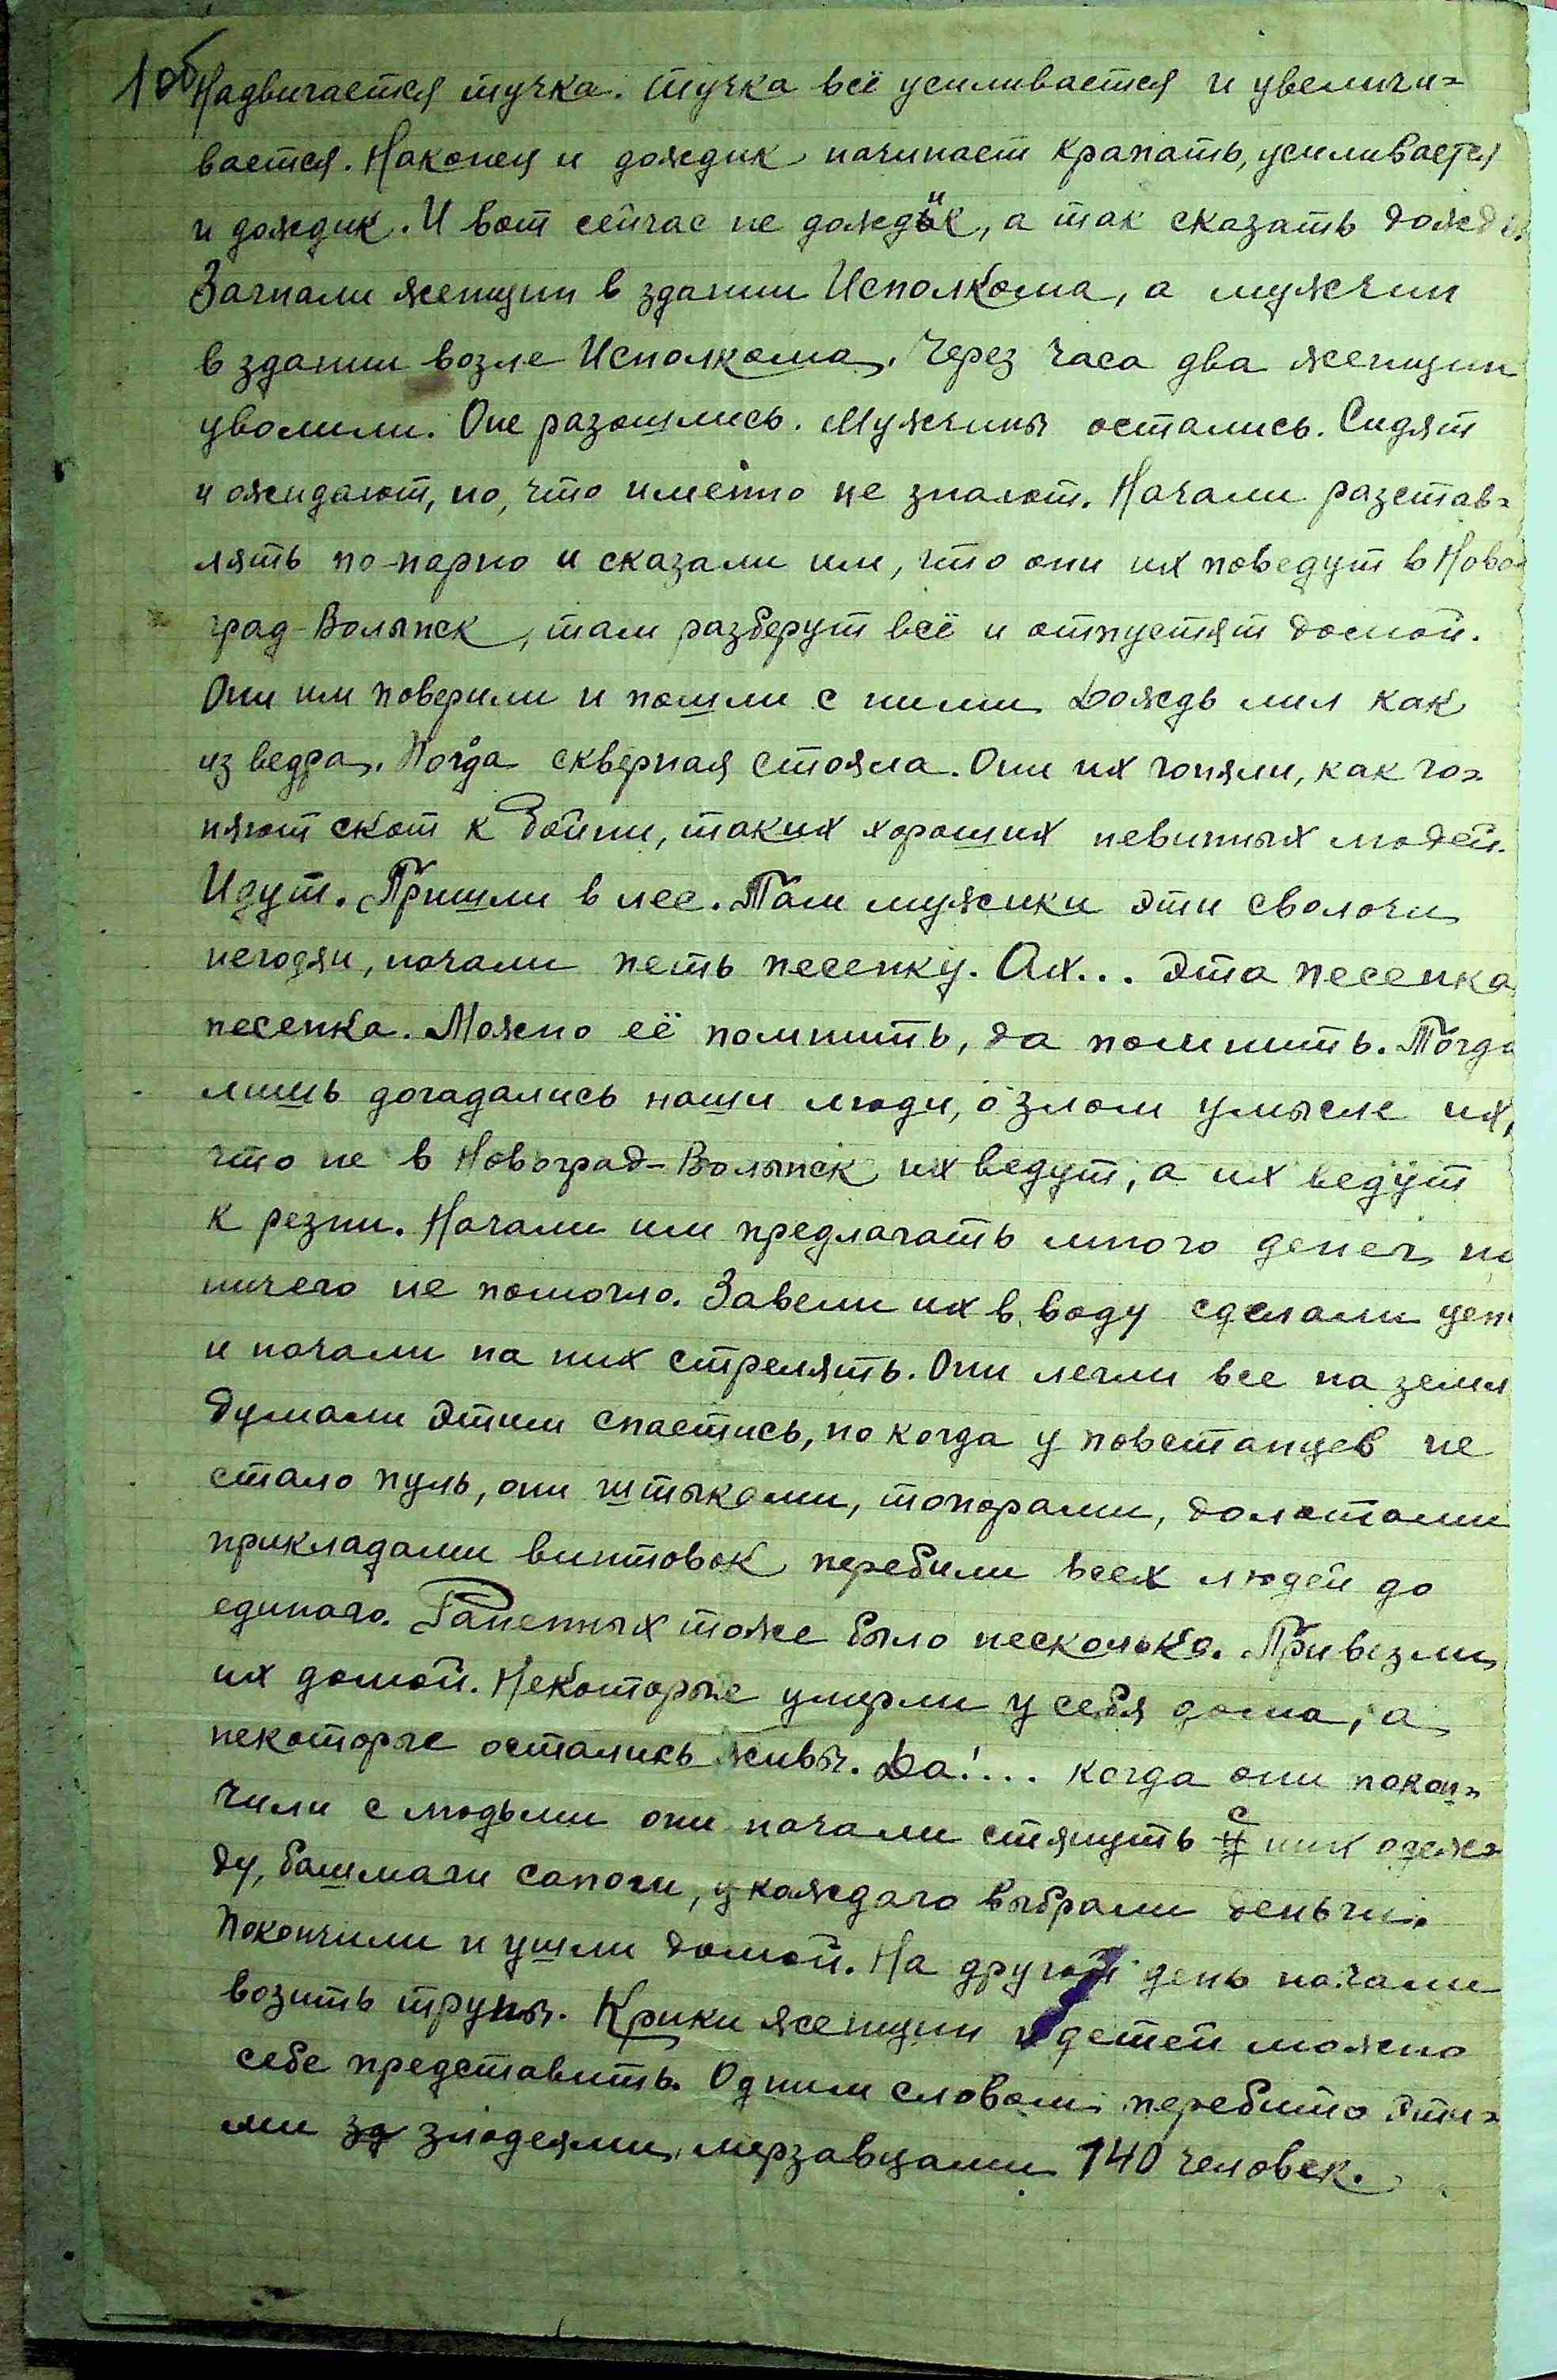 1об
Надвигается тучка. Тучка всё усиливается и увеличи=
вается. Наконец и дождик начинает крапать, усиливается
и дождик. И вот сейчас не дождик, а так сказать дождь.
Загнали женщин в здании Исполкома, а мужчин
в здании возле Исполкома. Через часа два женщин
уволили. Оне разошлись. Мужчины остались. Сидят
и ожидают, но, что именно не знают. Начали разстав=
лять по-парно и сказали им, что они их поведут в Ново
град-Волынск, там разберут всё и отпустят домой.
Они им поверили и пошли с ними Дождь лил как
из ведра. Погда скверная стояла. Они их гоняли, как го=
няют скот к бойни, таких хороших невинных людей.
Идут. Пришли в лес. Там мужики эти сволочи
негодяи, начали петь песенку. Ах... Эта песенка
песенка. Можно её помнить, да помнить. Тогда
лишь догадались наши люди, о злом умысле их,
что не в Новоград-Волынск их ведут, а их ведут
к резни. Начали им предлагать много денег но
ничего не помогло. Завели их в воду сделали цепь
и начали на них стрелять. Они легли все на земл
думали этим спастись, но когда у повстанцев не
стало пуль, они штыками, топорами, долотами
прикладами винтовок перебили всех людей до
единаго. Раненных тоже было несколько. Привезли
их домой. Некоторые умерли у себя дома, а
некоторые остались живы. Да!... когда они покон=
чили с людьми они начали стянуть с них одеж=
ду, башмаги сапоги, у каждаго выбрали деньги.
Покончили и ушли домой. На другой день начали
возить трупы. Крики женщин и детей можно
себе представить. Одним словом перебито эти=
ми зд злодеями, мерзавцами 140 человек.